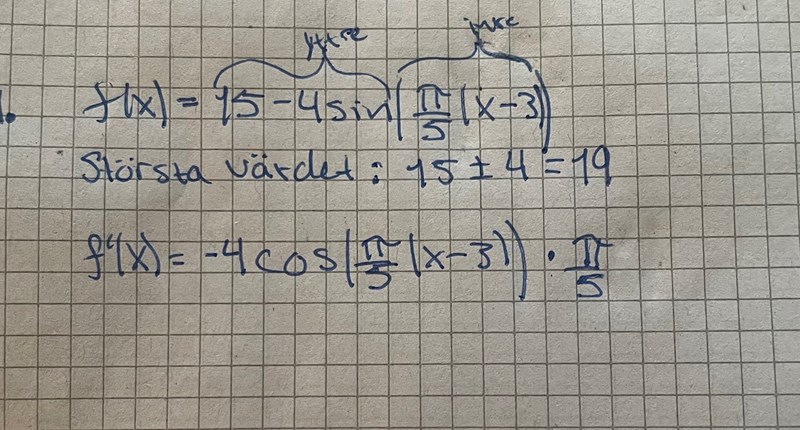 yttre inre
1. f(x) = 15 - 4 sin(π/5 (x-3))
Största värdet: 15 ± 4 = 19
f'(x) = -4 cos(π/5 (x-3)) · π/5